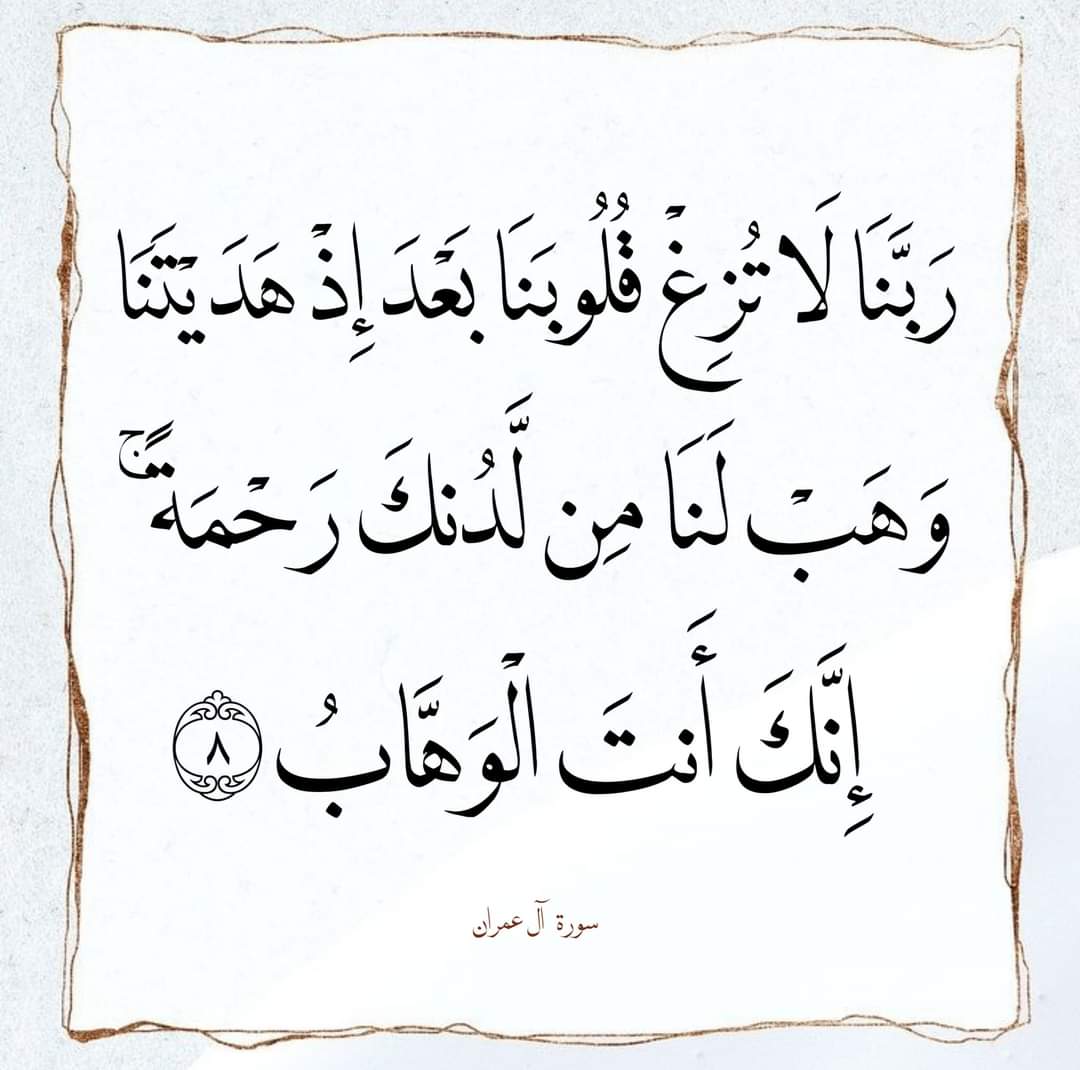 رَبَّنَا لَا تُزِغْ قُلُوبَنَا بَعْدَ إِذْ هَدَيْتَنَا
وَهَبْ لَنَا مِن لَّدُنكَ رَحْمَةً ۚ
إِنَّكَ أَنتَ الْوَهَّابُ ٨
سورة آل عمران